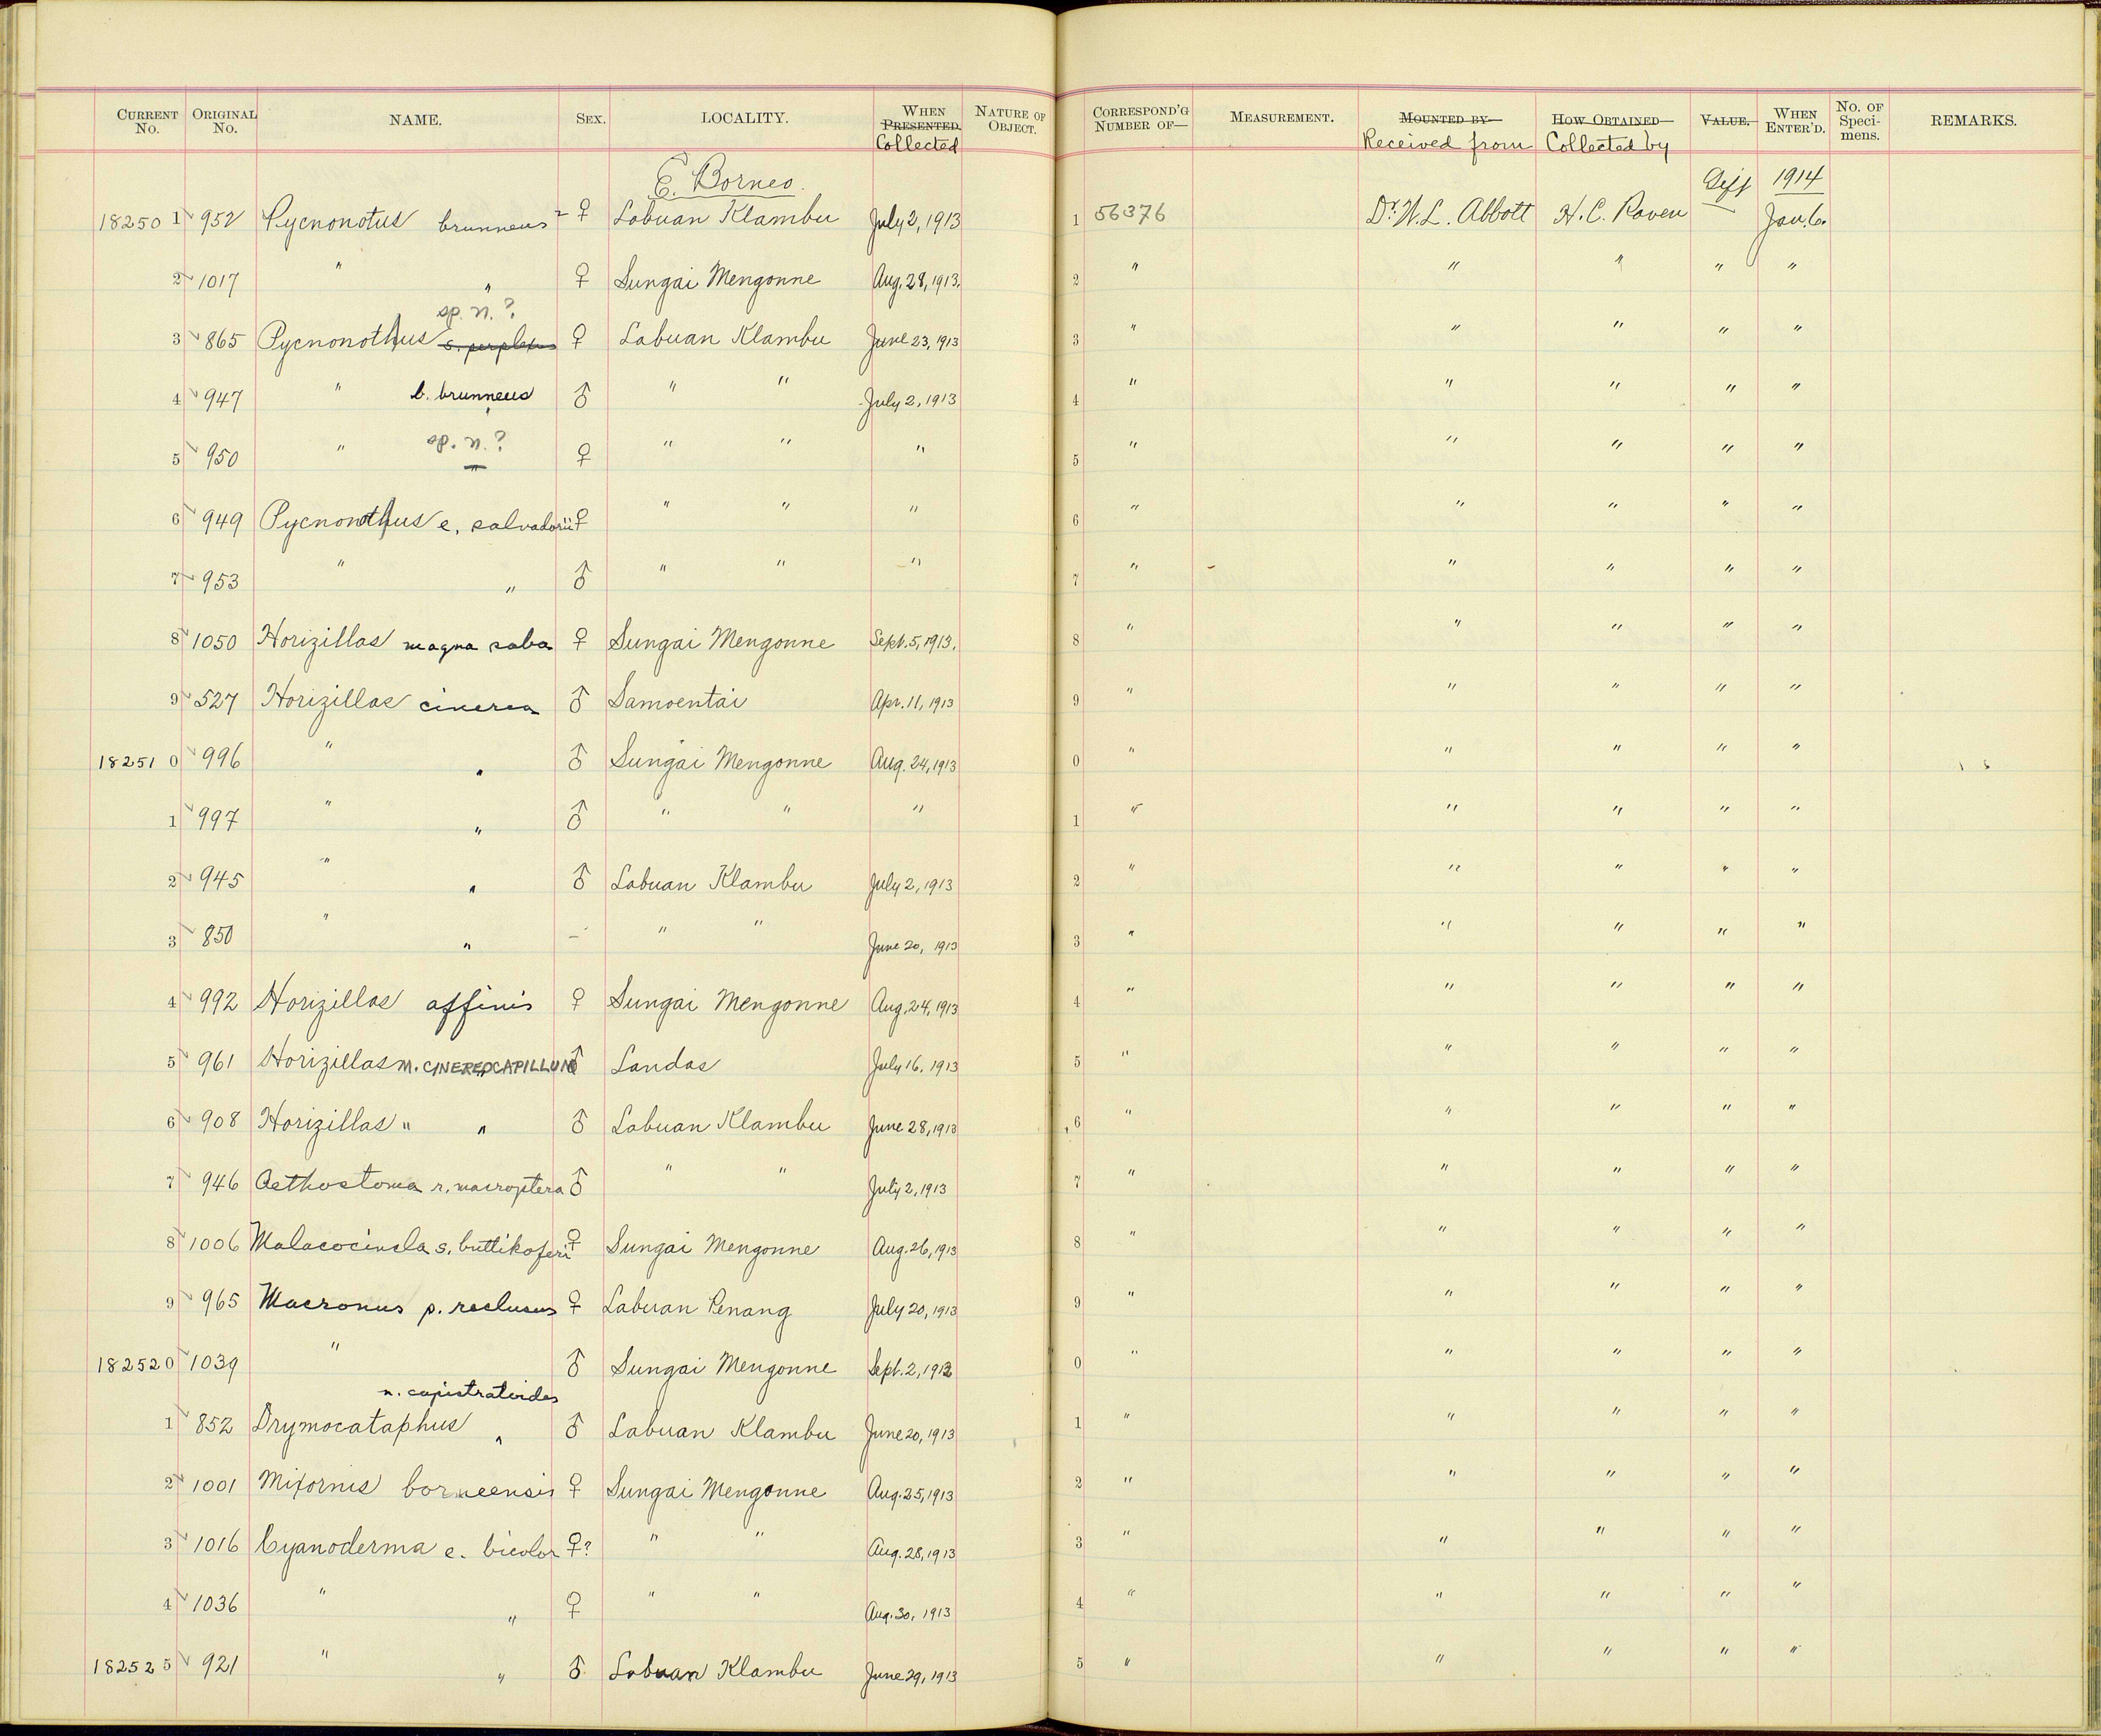 CURRENT No. ORIGINAL No. NAME. SEX. LOCALITY. WHEN PRESENTED. Collected NATURE OF OBJECT. CORRESPOND'G NUMBER OF— MEASUREMENT. MOUNTED BY— Received from HOW OBTAINED— Collected by VALUE. WHEN ENTER'D. No. OF Speci-mens. REMARKS.
E. Borneo. 1914
182501 952 Pycnonotus brunneus ♀ Labuan Klambu July 2, 1913 1 56376 Dr. W. L. Abbott H. C. Raven Jan. 6.
2 1017 " " ♀ Sungai Mengonne Aug. 28, 1913. 2 " " " " "
sp. n. ?
3 865 Pycnonothus s. perplexus ♀ Labuan Klambu June 23, 1913 3 " " " " "
4 947 " b. brunneus ♂ " " July 2, 1913 4 " " " " "
sp. n. ?
5 950 " " ♀ " " " 5 " " " " "
6 949 Pycnonothus e. salvadorii ♀ " " " 6 " " " " "
7 953 " " ♂ " " " 7 " " " " "
8 1050 Horizillas magna saba ♀ Sungai Mengonne Sept. 5, 1913. 8 " " " " "
9 527 Horizillas cinerea ♂ Samoentai Apr. 11, 1913 9 " " " " "
182510 996 " " ♂ Sungai Mengonne Aug. 24, 1913 0 " " " " "
1 997 " " ♂ " " " 1 " " " " "
2 945 " " ♂ Labuan Klambu July 2, 1913 2 " " " " "
3 850 " " – " " June 20, 1913 3 " " " " "
4 992 Horizillas affinis ♀ Sungai Mengonne Aug. 24, 1913 4 " " " " "
5 961 Horizillas M. CINEREOCAPILLUM ♂ Landas July 16, 1913 5 " " " " "
6 908 Horizillas " " ♂ Labuan Klambu June 28, 1913 6 " " " " "
7 946 Aethostoma r. macroptera ♂ " " July 2, 1913 7 " " " " "
8 1006 Malacocincla s. buttikoferi ♀ Sungai Mengonne Aug. 26, 1913 8 " " " " "
9 965 Macronus p. reclusus ♀ Labuan Penang July 20, 1913 9 " " " " "
182520 1039 " ♂ Sungai Mengonne Sept. 2, 1913 0 " " " " "
n. capistratoides
1 852 Drymocataphus " ♂ Labuan Klambu June 20, 1913 1 " " " " "
2 1001 Mixornis borneensis ♀ Sungai Mengonne Aug. 25, 1913 2 " " " " "
3 1016 Cyanoderma e. bicolor ♀? " " Aug. 28, 1913 3 " " " " "
4 1036 " " ♀ " " Aug. 30, 1913 4 " " " " "
182525 921 " " ♂ Labuan Klambu June 29, 1913 5 " " " " "